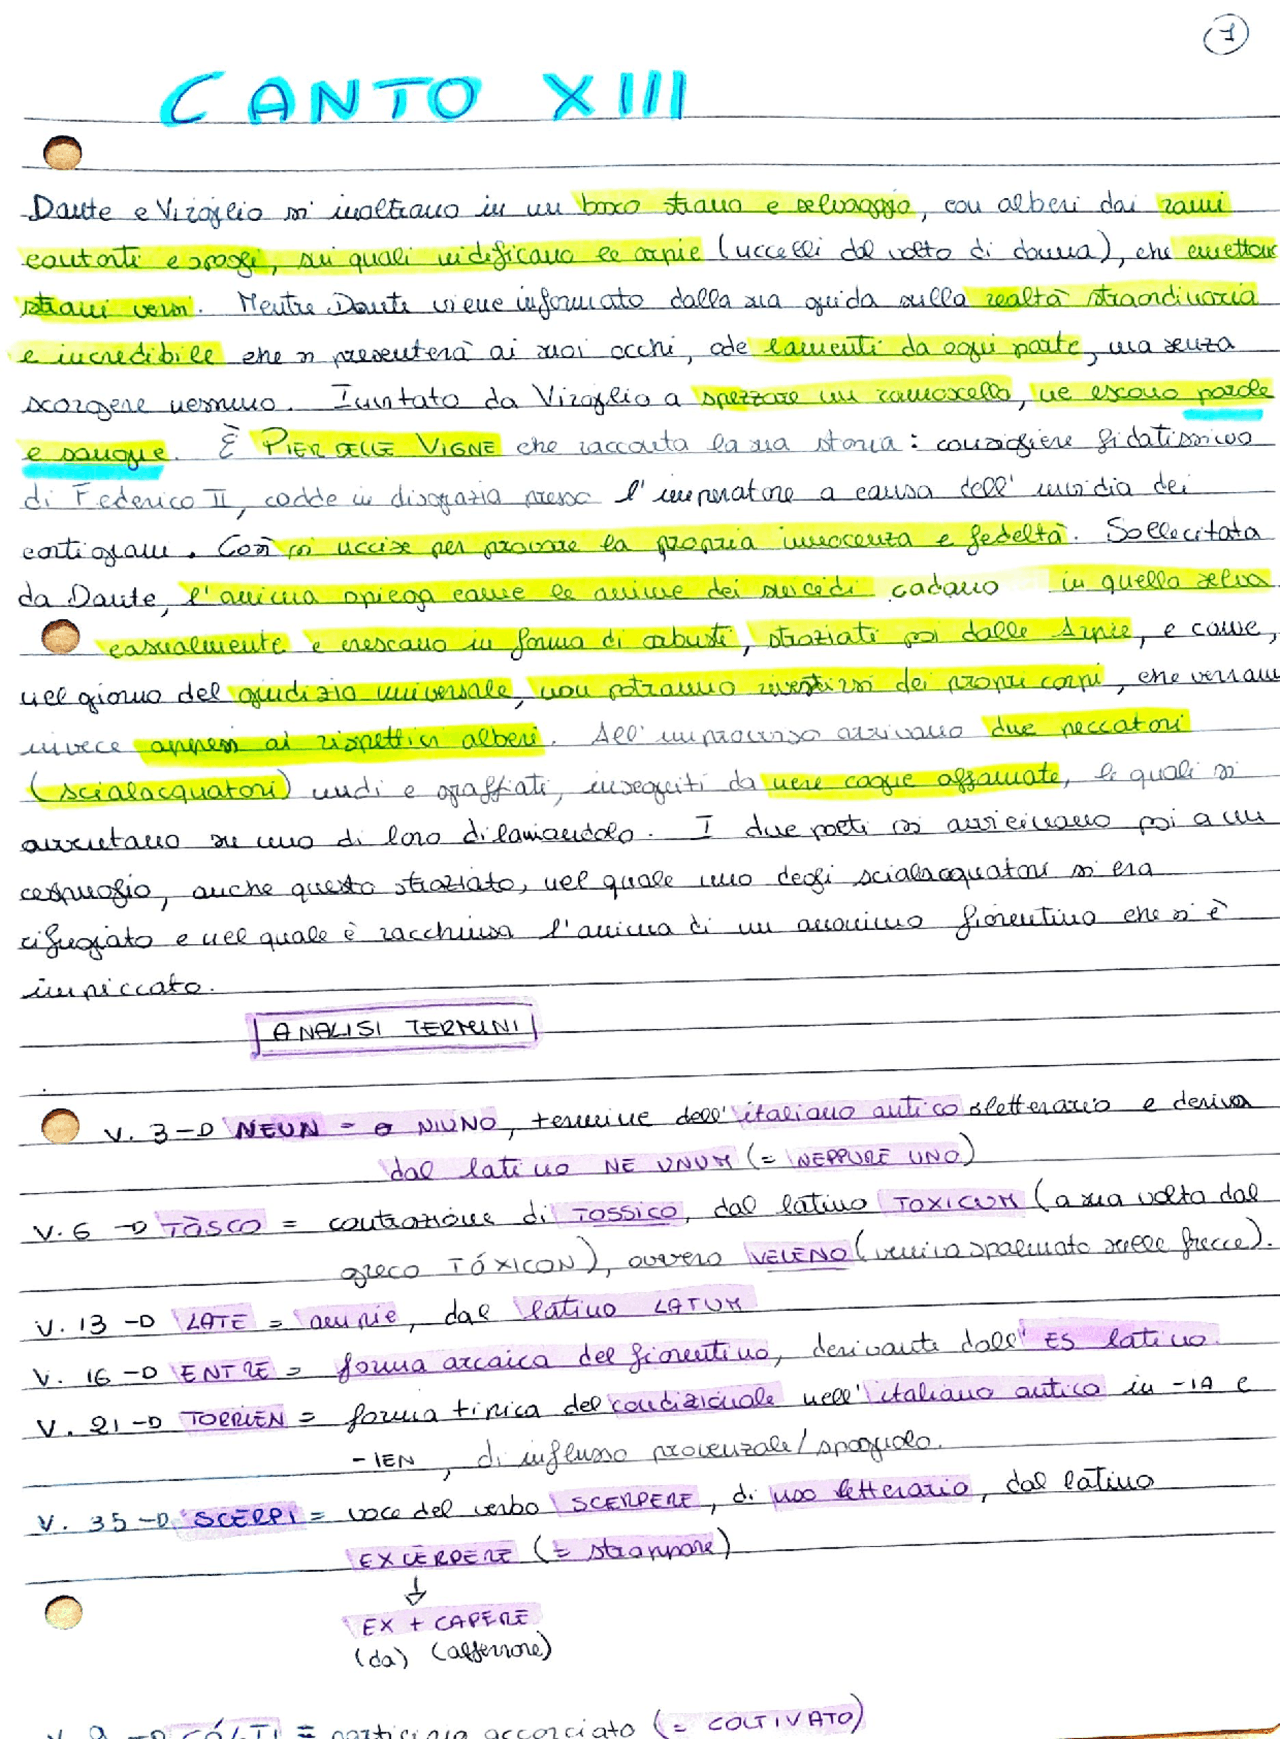 1
CANTO XIII
Dante e Virgilio si inoltrano in un bosco strano e selvaggio, con alberi dai rami
contorti e spogli, sui quali nidificano le arpie (uccelli dal volto di donna), che emettono
strani versi. Mentre Dante viene informato dalla sua guida sulla realtà straordinaria
e incredibile che si presenterà ai suoi occhi, ode lamenti da ogni parte, ma senza
scorgere nessuno. Invitato da Virgilio a spezzare un ramoscello, ne escono parole
e sangue. È PIER DELLE VIGNE che racconta la sua storia: consigliere fidatissimo
di Federico II, cadde in disgrazia presso l'imperatore a causa dell'invidia dei
cortigiani. Così si uccise per provare la propria innocenza e fedeltà. Sollecitata
da Dante, l'anima spiega come le anime dei suicidi cadano in quella selva
casualmente e crescano in forma di arbusti, straziati poi dalle Arpie, e come,
nel giorno del giudizio universale, non potranno rivestirsi dei propri corpi, che verranno
invece appesi ai rispettivi alberi. All'improvviso arrivano due peccatori
(scialacquatori) nudi e graffiati, inseguiti da nere cagne affamate, le quali si
avventano su uno di loro dilaniandolo. I due poeti si avvicinano poi a un
cespuglio, anche questo straziato, nel quale uno degli scialacquatori si era
rifugiato e nel quale è racchiusa l'anima di un anonimo fiorentino che si è
impiccato.
ANALISI TERMINI
V. 3 → NEUN = o NIUNO, termine dell'italiano antico letterario e deriva
dal latino NE UNUM (= NEPPURE UNO)
V. 6 → TÒSCO = contrazione di TOSSICO, dal latino TOXICUM (a sua volta dal
greco TÓXICON), ovvero VELENO (veniva spalmato sulle frecce).
V. 13 → LATE = ampie, dal latino LATUM
V. 16 → ENTRE = forma arcaica del fiorentino, derivante dall'ES latino.
V. 21 → TORRIEN = forma tipica del condizionale nell'italiano antico in -IA e
-IEN, di influsso provenzale/spagnolo.
V. 35 → SCERPI = voce del verbo SCERPERE, di uso letterario, dal latino
EXCERPERE (= strappare)
↓
EX + CAPERE
(da) (afferrare)
V. 9 → CÓLTI = participio accorciato (= COLTIVATO)